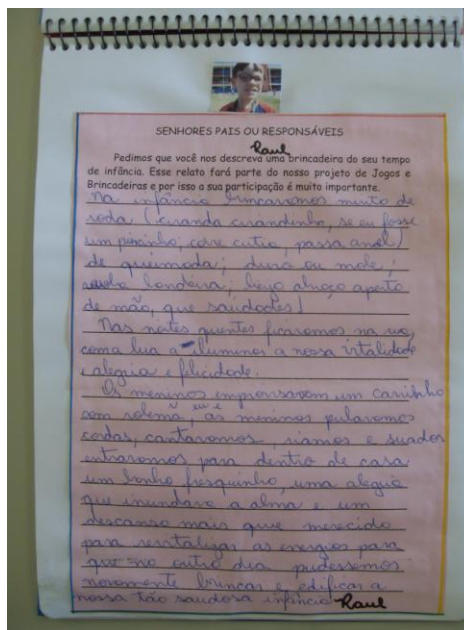 SENHORES PAIS OU RESPONSÁVEIS
Raul
Pedimos que você nos descreva uma brincadeira do seu tempo
de infância. Esse relato fará parte do nosso projeto de Jogos e
Brincadeiras e por isso a sua participação é muito importante.
Na infância brincavamos muito de
roda (ciranda cirandinha, se eu fosse
um peixinho; corre cutia, passa anel)
de queimada; duro ou mole;
bandeira; beijo abraço aperto
de mão, que saudades!
Nas noites quentes ficavamos na rua,
com a lua a iluminar a nossa vitalidade
alegria e felicidade.
Os meninos improvisavam um carrinho
com rolemã, eu e as meninas pulavamos
cordas, cantavamos, riamos e suados
entravamos para dentro de casa
um banho fresquinho, uma alegria
que inundava a alma e um
descanso mais que merecido
para revitalizar as energias para
que no outro dia pudessemos
novamente brincar e edificar a
nossa tão saudosa infância Raul